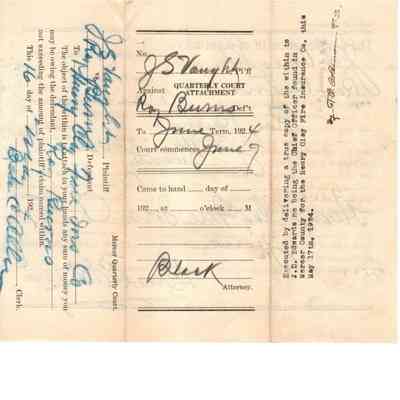 J S Vaught
Plaintiff
Roy Burns
Defendant
Mercer Quarterly Court.
To Henry Clay Fire Ins Co
The object of the within is to attach in your hands any sum of money you
may be owing the defendant,
not exceeding the amount of plaintiff's claim named within.
This 16 day of May 192
Clerk.
No.
J S Vaught
QUARTERLY COURT
ATTACHMENT
Against
Roy Burns
To June Term, 1924
Court commences June 9
Came to hand day of
192 , at o'clock M
Black
Attorney.
Executed by delivering a true copy of the within to
J.D. Edwards he being the Chief Officer found in
Mercer County for the Henry Clay Fire Insurance Co, this
May 17th, 1924.